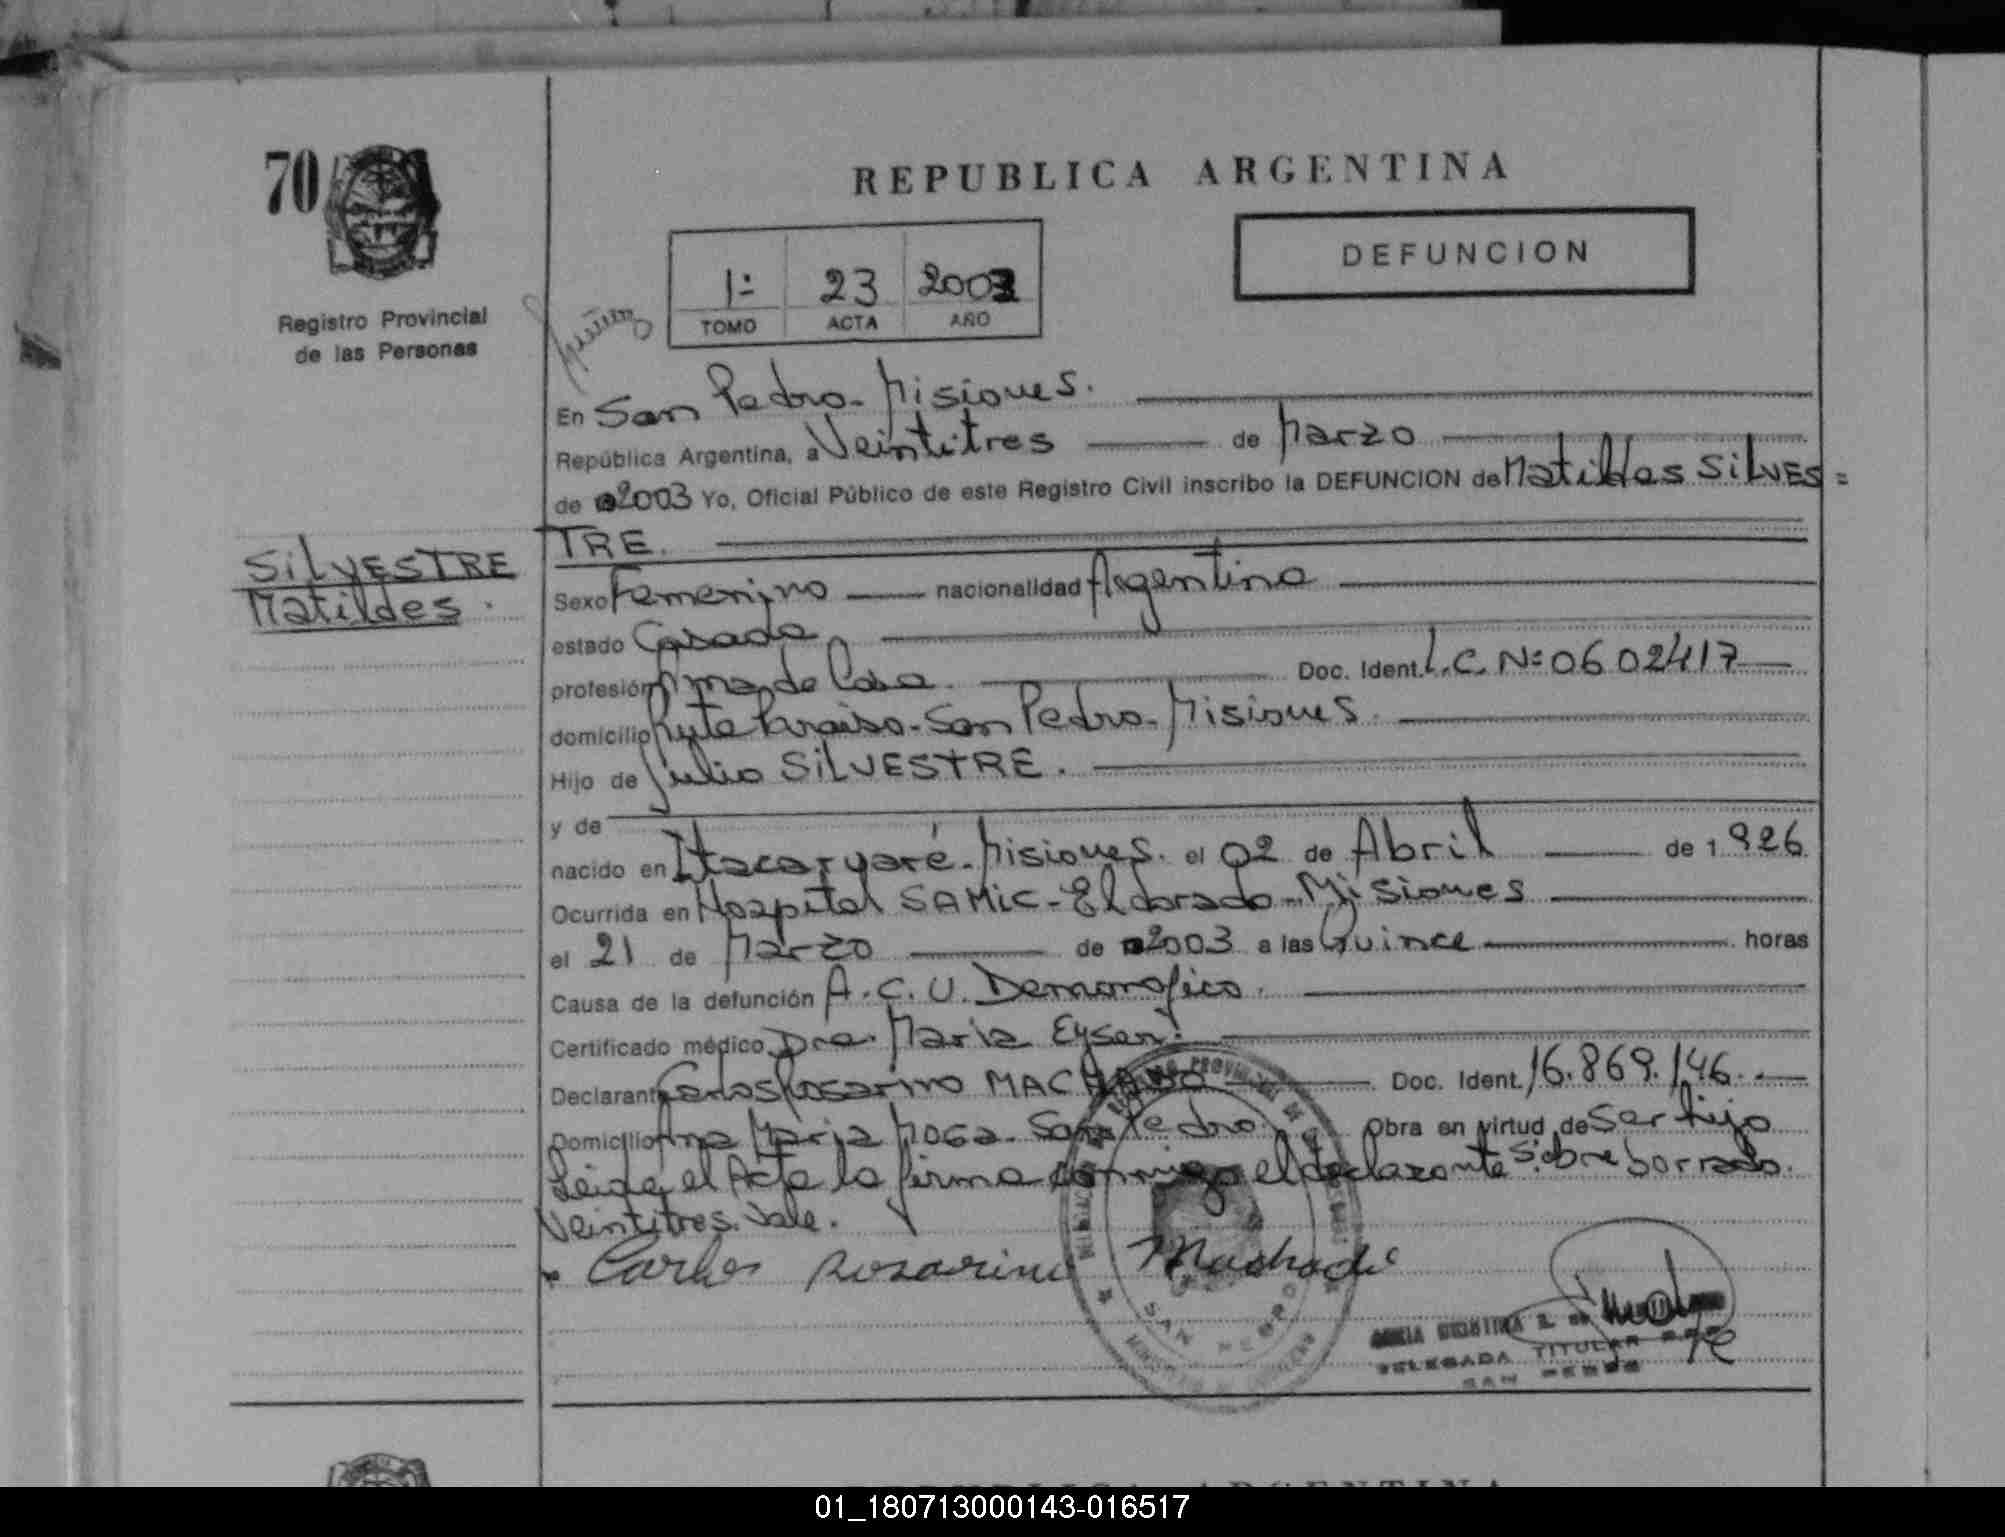 70
REPUBLICA ARGENTINA
DEFUNCION
Registro Provincial
de las Personas
1º 23 2003
TOMO ACTA AÑO
En San Pedro - Misiones.
República Argentina, a Veintitres de Marzo
de 2003 Yo, Oficial Público de este Registro Civil inscribo la DEFUNCION de Matildes SILVES=
TRE.
SILVESTRE
Matildes.
Sexo Femenino nacionalidad Argentina
estado Casada
profesión Ama de Casa. Doc. Ident. L.C. Nº 0602417
domicilio Paraiso - San Pedro - Misiones.
Hijo de Julio SILVESTRE.
y de
nacido en Itacaruaré - Misiones. el 02 de Abril de 1.926
Ocurrida en Hospital SAMIC - Eldorado - Misiones
el 21 de Marzo de 2003 a las Quince horas
Causa de la defunción A.C.V.
Certificado médico Dra. Maria
Declarante Carlos Rosarino MACHADO Doc. Ident. 16.869.146.
Domicilio Ana Maria Moga - San Pedro Obra en virtud de Ser hijo
Leida el Acta la firma conmigo el declarante Sobre borrado.
Veintitres. Vale.
Carlos Rosarino Machado
SAN PEDRO
DELEGADA TITULAR
SAN PEDRO
REPUBLICA ARGENTINA
01_180713000143-016517